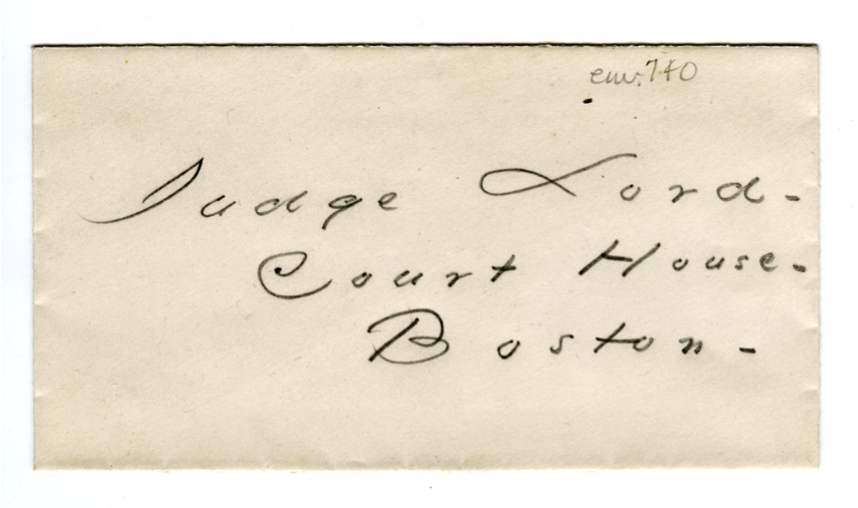 env. 740
Judge Lord-
Court House-
Boston-